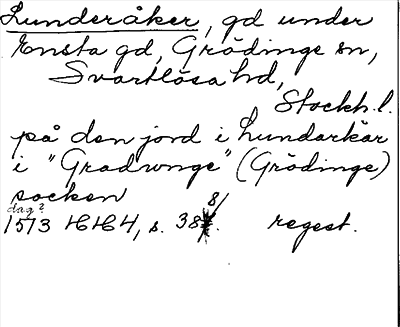 Lunderåker, gd under
Ensta gd, Grödinge sn,
Svartlösa hd,
Stockh. l.
på den jord i Lundarkär
i "Gradunge" (Grödinge)
socken
dag? 8/
1573 HH4, s. 38. regest.